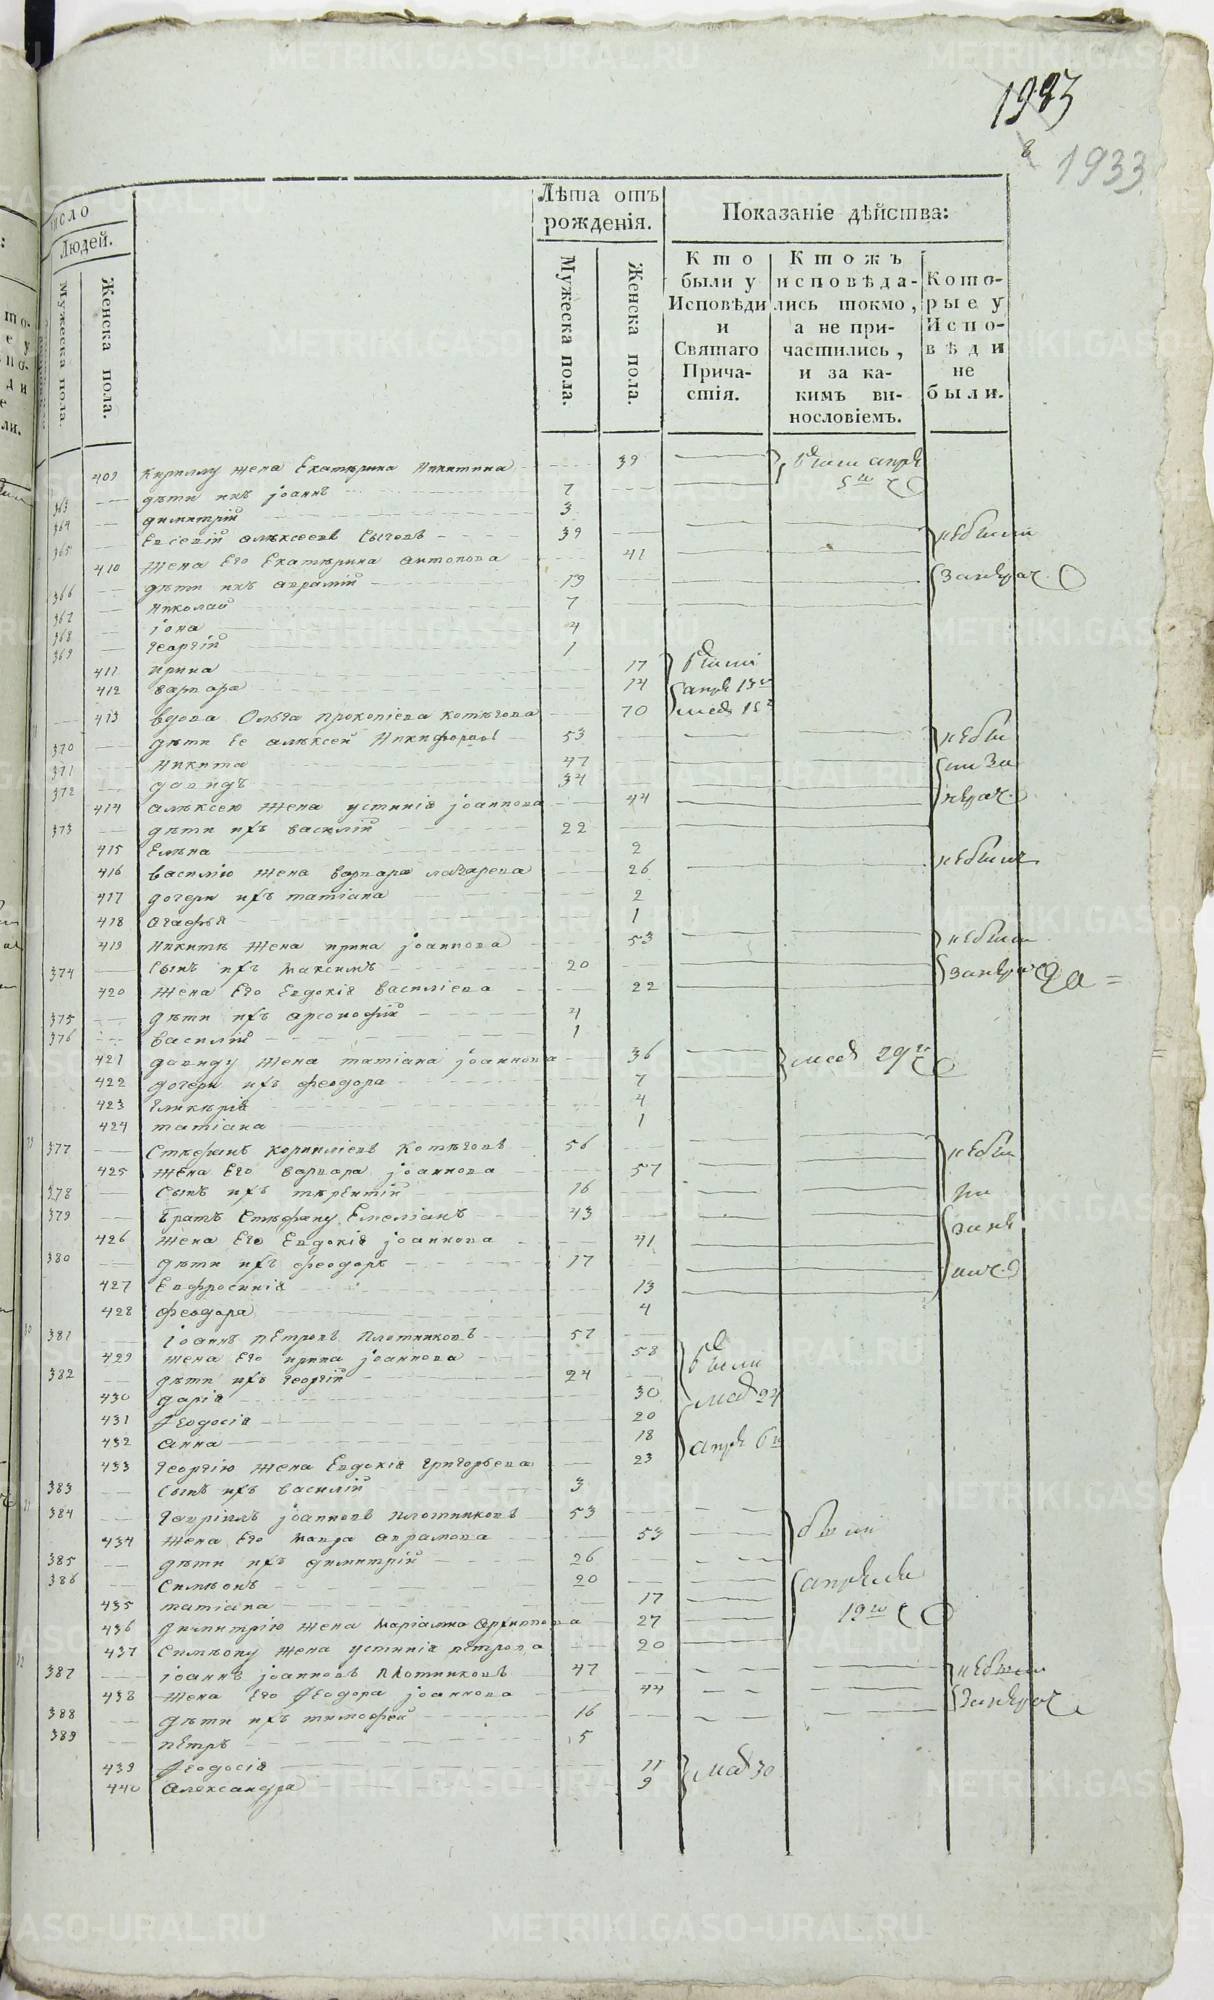 1983
1933
число
Людей.
Мужеска пола.
Женска пола.
Лѣта отъ
рожденія.
Мужеска пола.
Женска пола.
Показаніе дѣйства:
Кто
были у
Исповѣди
и
Святаго
Прича-
стія.
Ктожъ
исповѣда-
лись токмо,
а не при-
частились,
и за ка-
кимъ ви-
нословіемъ.
Кото-
рые у
Испо-
вѣди
не
были.
409 Кириллу жена Екатѣрина Никитина 39
363 дѣти ихъ Іоаннъ 7
364 димитрій 3
365 Евсевій алѣксеевъ Сычевъ 39
410 жена Его Екатѣрина антонова 41
366 дѣти ихъ авраамій 19
367 Николай 7
368 іона 4
369 георгій 1
411 ирина 17
412 варвара 14
413 вдова Ольга прокопіева котѣгова 70
370 дѣти Ее алѣксей Никифоровы 53
371 Никита 47
372 давидъ 34
414 алѣксею жена устинія іоаннова 44
373 дѣти ихъ василій 22
415 Елѣна 2
416 василію жена варвара лазарева 26
417 дочери ихъ татіана 2
418 агафья 1
419 Никитѣ жена ирина іоаннова 53
374 сынъ ихъ максимъ 20
420 жена Его Евдокія василіева 22
375 дѣти ихъ 4
376 василій 1
421 давиду жена татіана іоаннова 36
422 дочери ихъ феодора 7
423 гликѣрія 4
424 татіана 1
377 Стѣфанъ корниліевъ котѣговъ 56
425 жена Его варвара іоаннова 57
378 сынъ ихъ тѣрентій 16
379 братъ Стѣфану Емеліанъ 43
426 жена Его Евдокія іоаннова 41
380 дѣти ихъ феодоръ 17
427 Евфросинія 13
428 феодора 4
381 іоаннъ пЕтровъ плотниковъ 57
429 жена Его ирина іоаннова 58
382 дѣти ихъ георгій 24
430 дарія 30
431 феодосія 20
432 анна 18
433 георгію жена Евдокія григорьева 23
383 сынъ ихъ василій 3
384 гавріилъ іоанновъ плотниковъ 53
434 жена Его мавра аврамова 53
385 дѣти ихъ димитрій 26
386 Симѣонъ 20
435 татіана 17
436 димитрію жена маріамна архиппова 27
437 Симѣону жена устинія пѣтрова 20
387 іоаннъ іоанновъ плотниковъ 47
438 жена Его феодора іоаннова 44
388 дѣти ихъ тимофей 16
389 пЕтръ 5
439 феодосія 11
440 александра 9
маа 30
METRIKI.GASO-URAL.RU